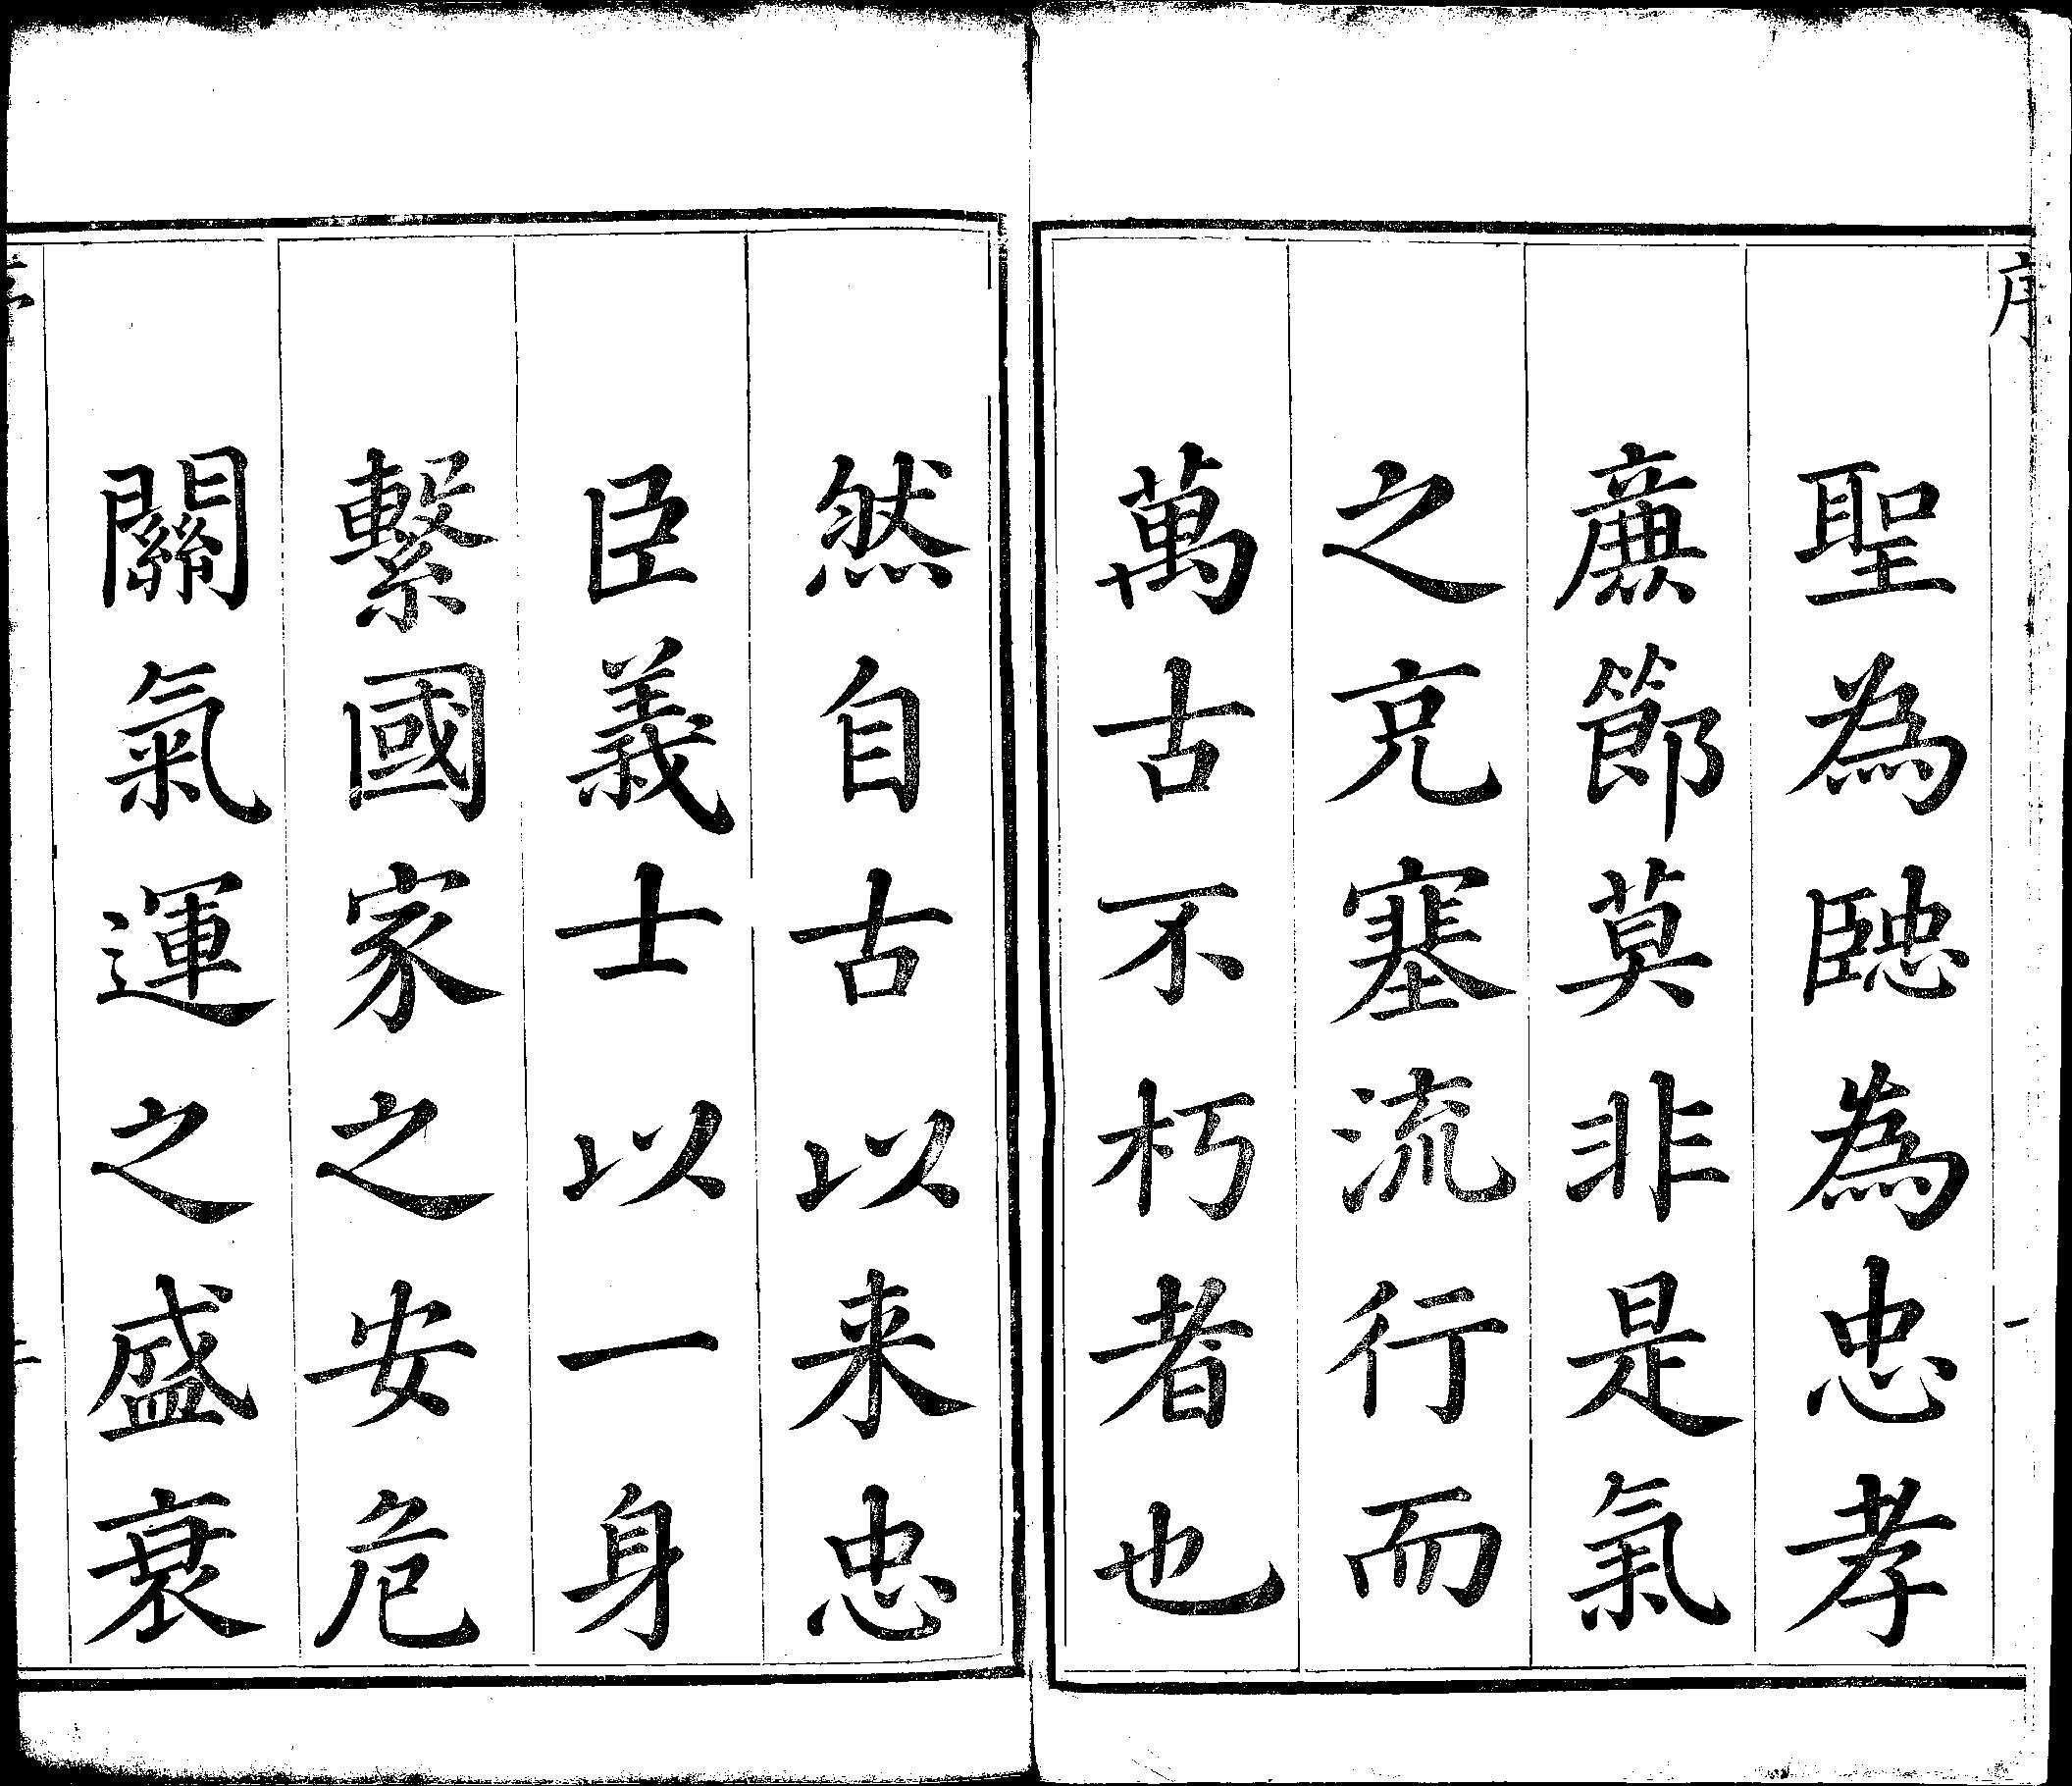 序
聖為聦為忠孝
亷節莫非是氣
之充塞流行而
萬古不朽者也
一
然自古以来忠
臣義士以一身
繫國家之安危
關氣運之盛衰